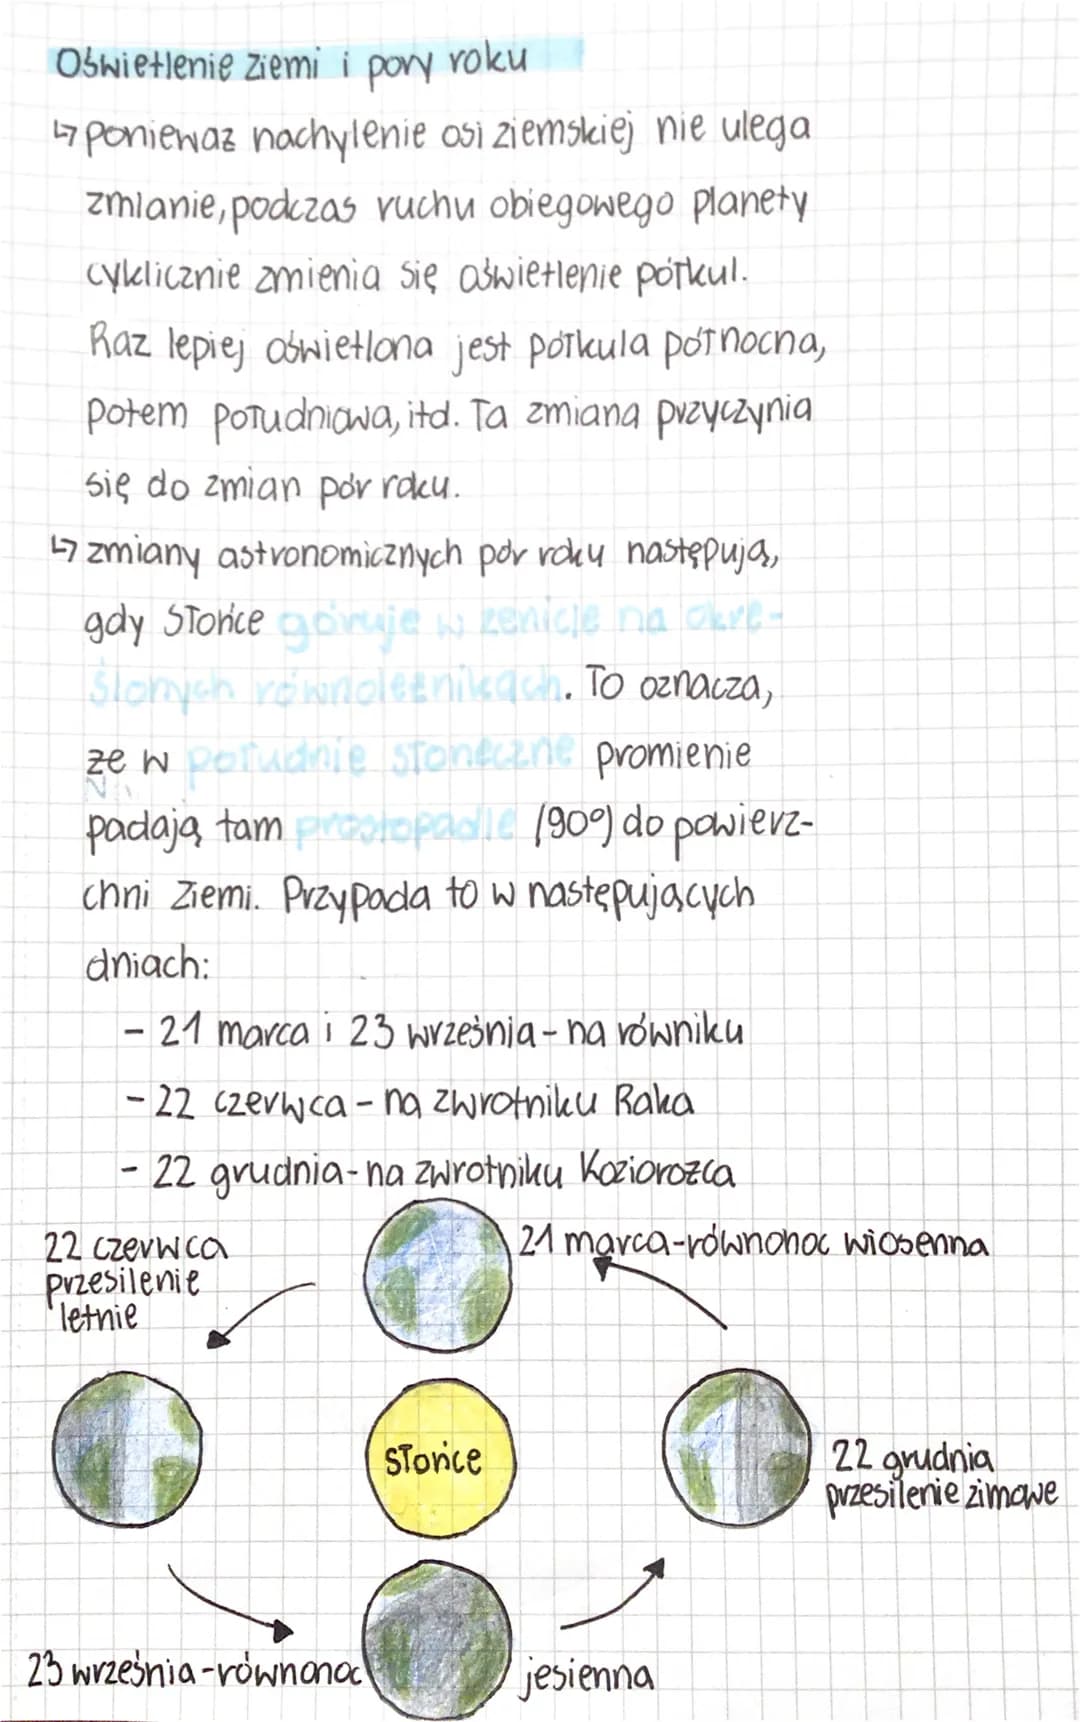 Oświetlenie Ziemi i pory roku
↳ ponieważ nachylenie osi ziemskiej nie ulega
zmianie, podczas ruchu obiegowego planety
cyklicznie zmienia się oświetlenie półkul.
Raz lepiej oświetlona jest półkula północna,
potem południowa, itd. Ta zmiana przyczynia
się do zmian pór roku.
↳ zmiany astronomicznych pór roku następują,
gdy Słońce góruje w zenicie na okre-
ślonych równoleżnikach. To oznacza,
że w południe słoneczne promienie
padają tam prostopadle (90°) do powierz-
chni Ziemi. Przypada to w następujących
dniach:
- 21 marca i 23 września - na równiku
- 22 czerwca - na zwrotniku Raka
- 22 grudnia - na zwrotniku Koziorożca
22 czerwca
przesilenie
letnie
21 marca - równonoc wiosenna
Słońce
22 grudnia
przesilenie zimowe
23 września - równonoc jesienna